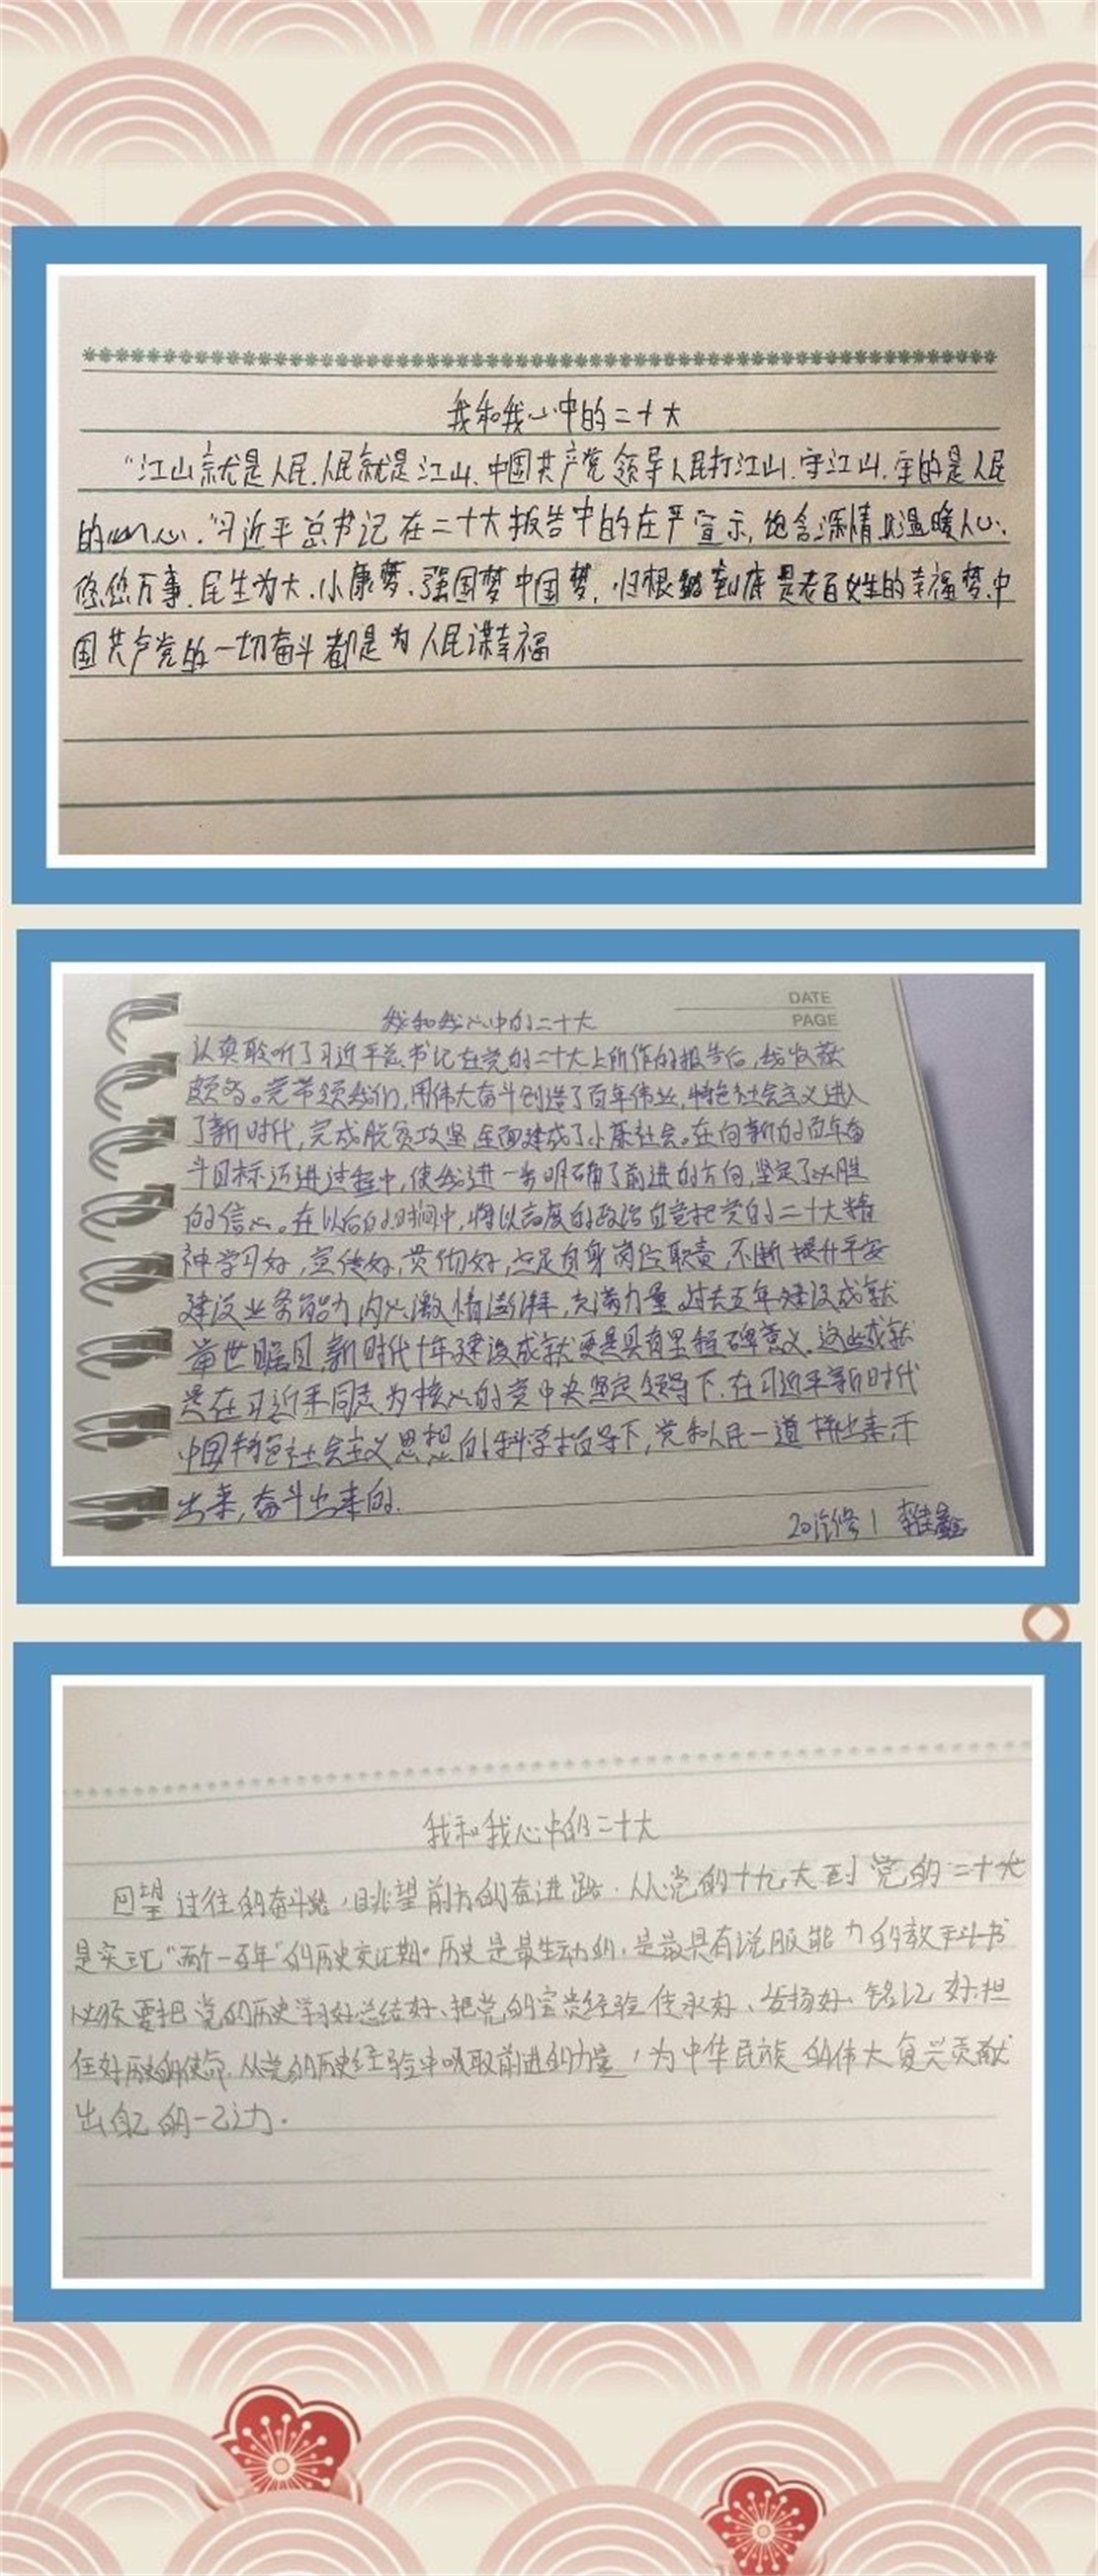 我和我心中的二十大
"江山就是人民.人民就是江山、中国共产党领导人民打江山.守江山.守的是人民
的心."习近平总书记在二十大报告中的庄严宣示,饱含深情、温暖人心.
悠悠万事.民生为大.小康梦.强国梦中国梦,归根到底是老百姓的幸福梦.中
国共产党的一切奋斗都是为人民谋幸福
DATE
PAGE
我和我心中的二十大
认真聆听了习近平总书记在党的二十大上所作的报告后,我收获
颇多。党带领我们,用伟大奋斗创造了百年伟业,特色社会主义进入
了新时代,完成脱贫攻坚,全面建成了小康社会。在向新的百年奋
斗目标迈进过程中,使我进一步明确了前进的方向,坚定了必胜
的信心。在以后的时间中,将以高度的政治自觉把党的二十大精
神学习好,宣传好,贯彻好,立足自身岗位职责,不断提升平安
建设业务能力内心激情澎湃,充满力量.过去五年建设成就
举世瞩目,新时代十年建设成就更是具有里程碑意义.这些成就
是在习近平同志为核心的党中央坚定领导下.在习近平新时代
中国特色社会主义思想的科学指导下,党和人民一道拼出来干
出来,奋斗出来的.
20汽修1 李佳鑫
我和我心中的二十大
回望过往的奋斗路,眺望前方的奋进路.从党的十九大到党的二十大
是实现"两个一百年"的历史交汇期.历史是最生动的.是最具有说服能力的教科书
必须要把党的历史学习好总结好、把党的宝贵经验传承好、发扬好、铭记好.担
任好历史的使命.从党的历史经验中吸取前进的力量,为中华民族的伟大复兴贡献
出自己的一己之力.